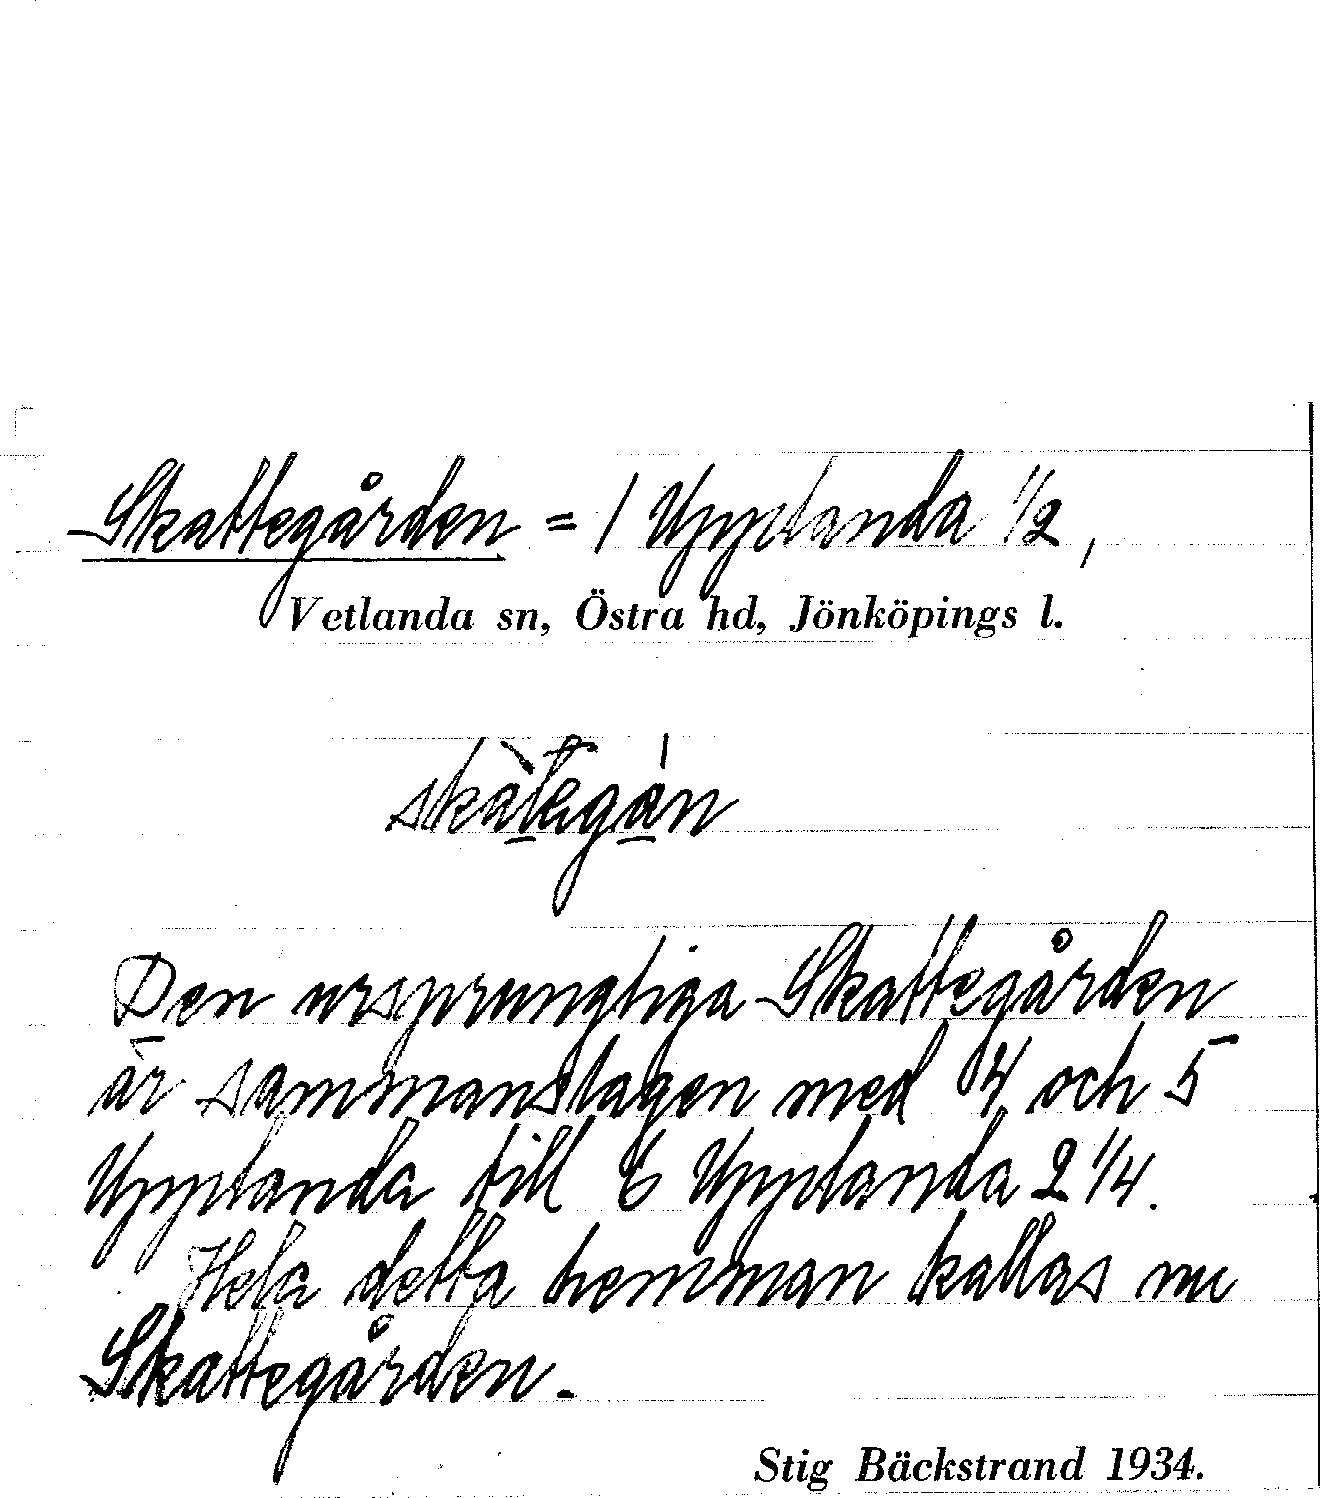 Skattegården = 1 Upplanda 1/2,
Vetlanda sn, Östra hd, Jönköpings l.
Den ursprungliga Skattegården
är sammanslagen med 4 och 5
Upplanda till 6 Upplanda 2 1/4.
Hela detta hemman kallas nu
Skattegården.-
Stig Bäckstrand 1934.